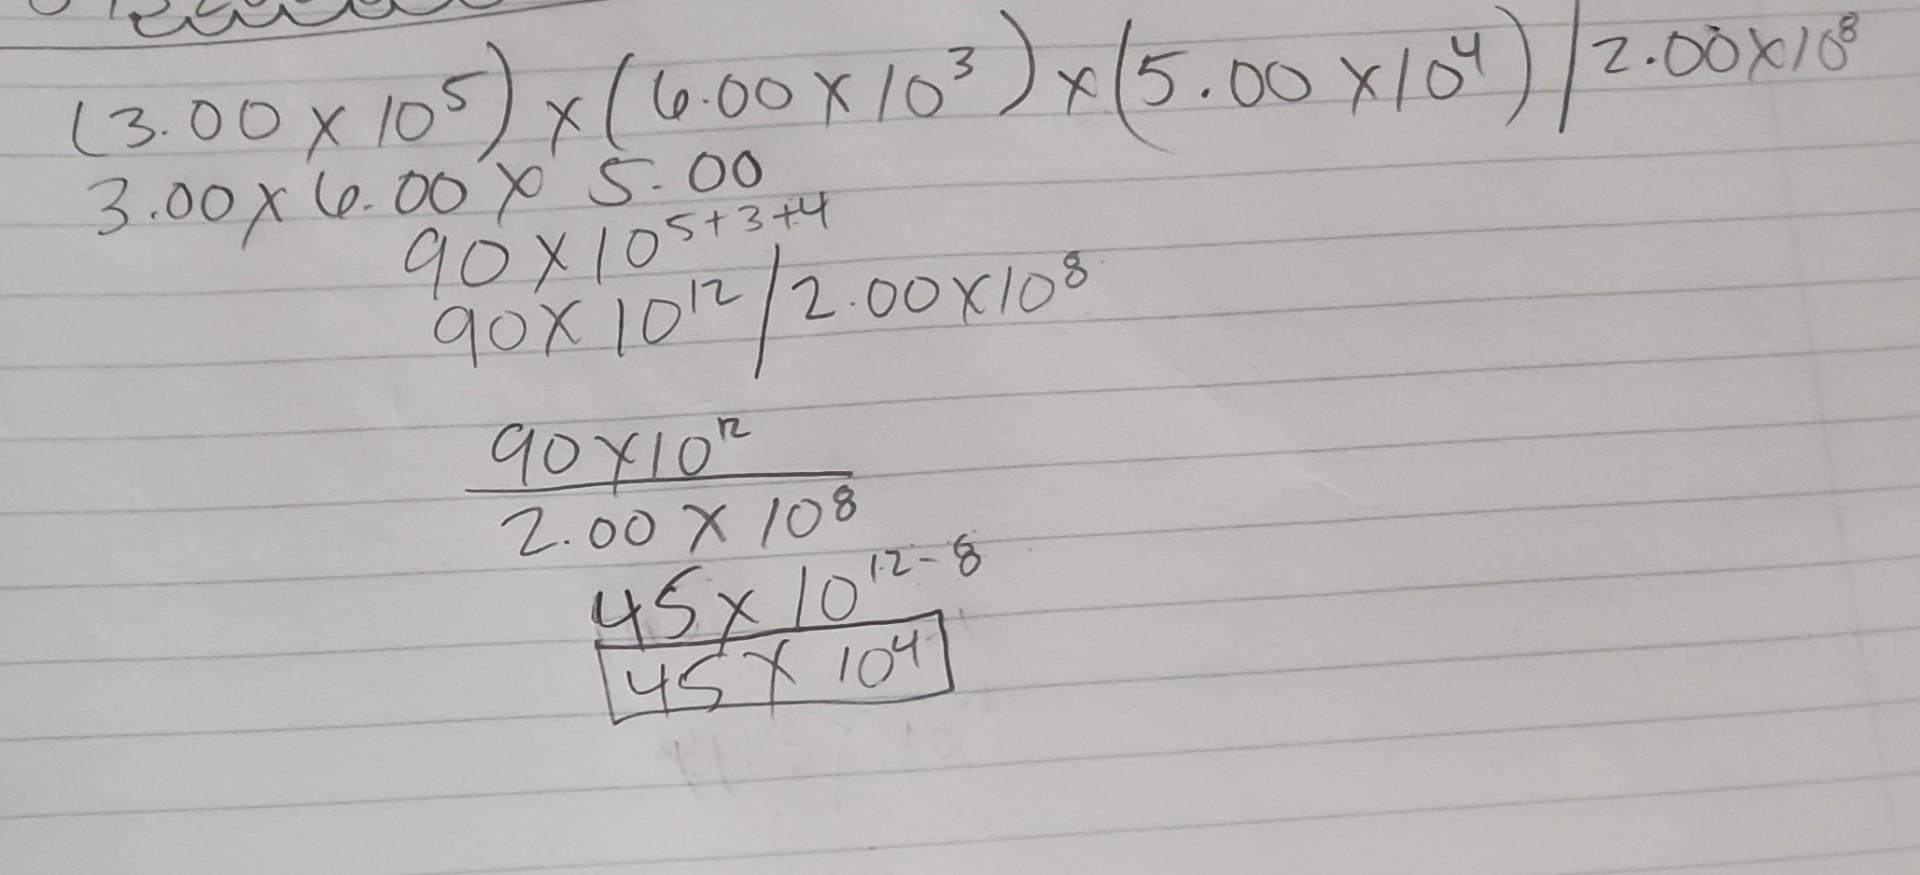 (3.00 x 10⁵) x (6.00 x 10³) x (5.00 x 10⁴) / 2.00 x 10⁸
3.00 x 6.00 x 5.00
90 x 10⁵⁺³⁺⁴
90 x 10¹² / 2.00 x 10⁸
90 x 10¹²
2.00 x 10⁸
45 x 10¹²⁻⁸
45 x 10⁴